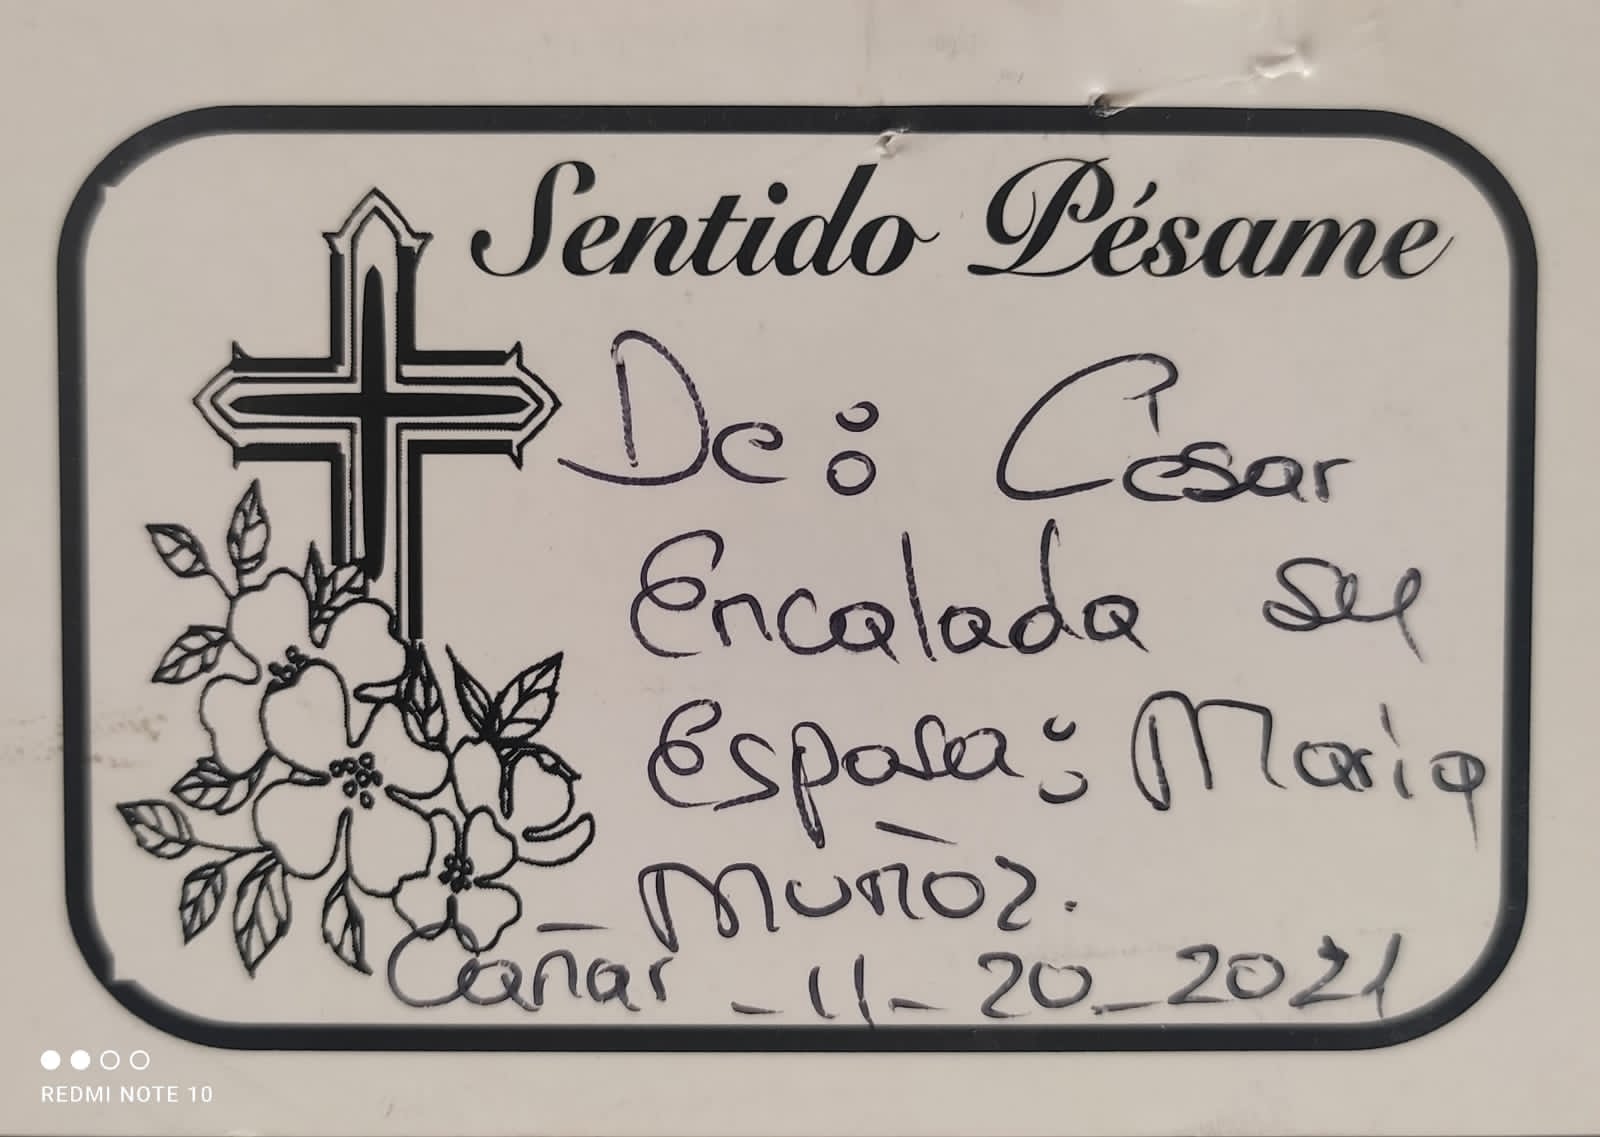 Sentido Pésame
De: César
Encalada su
Esposa: Maria
Muñoz.
Cañar - 11 - 20 - 2021
REDMI NOTE 10